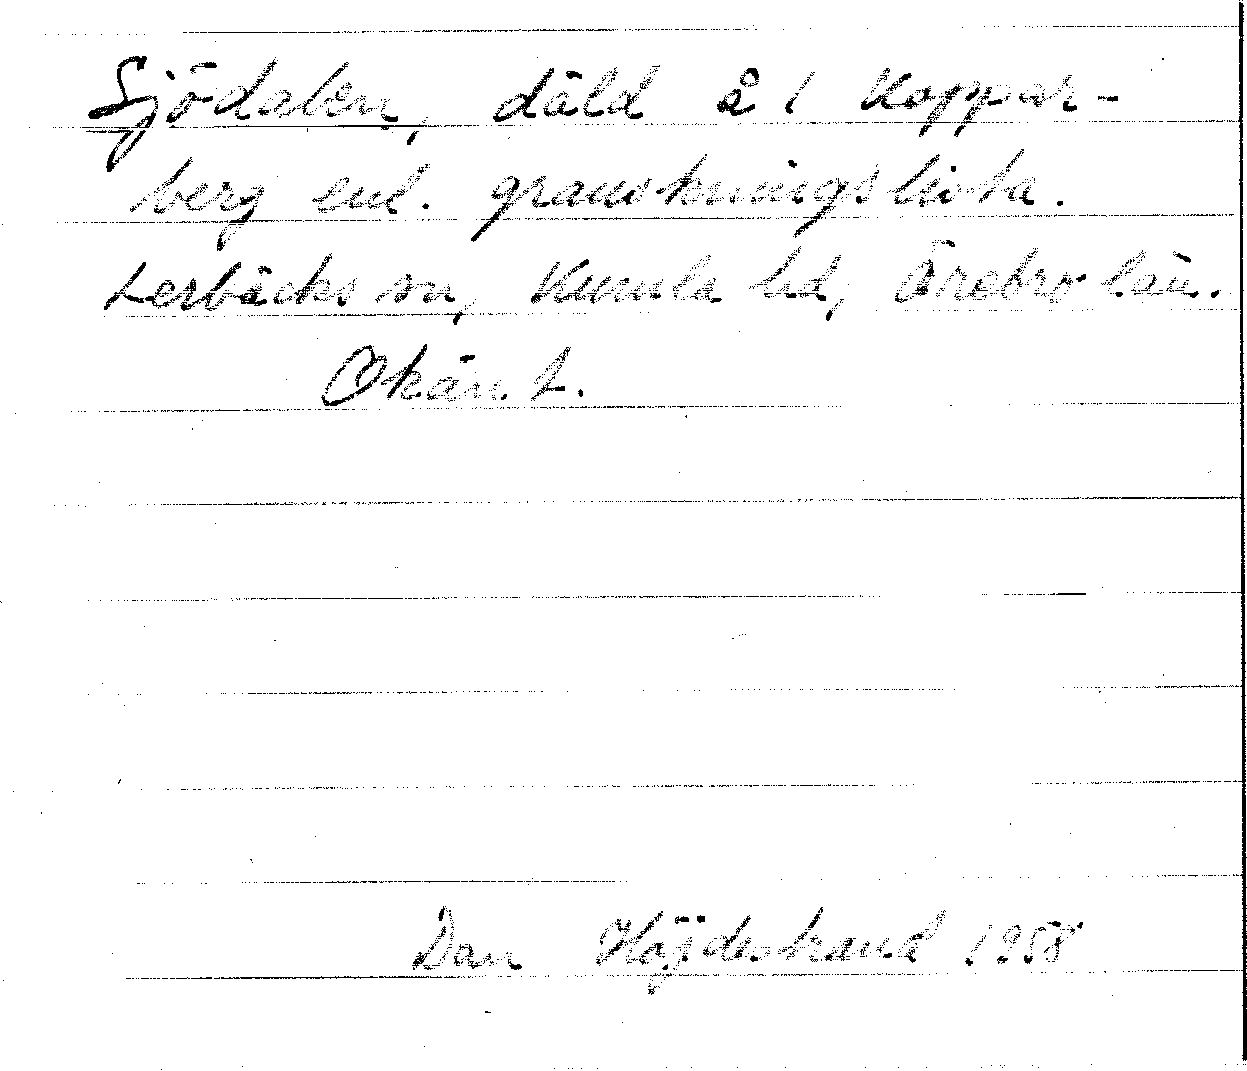 Sjödalen, däld å 1 Koppar-
berg enl. granskningslista.
Lerbäcks sn, Kumla hd, Örebro län.
Okänt.
Dan Höjdestrand 1958